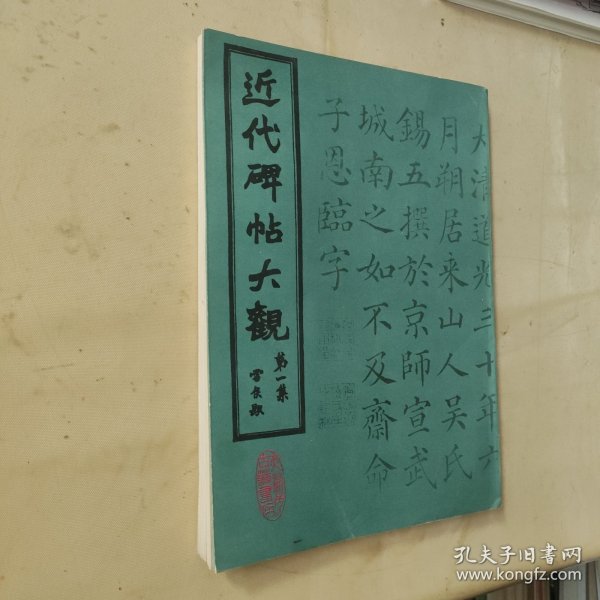 近代碑帖大觀
第一集
大清道光三十年六
月朔居来山人吴氏
錫五撰於京師宣武
城南之如不及齋命
子恩臨字
孔夫子旧書网
www.kongfz.com